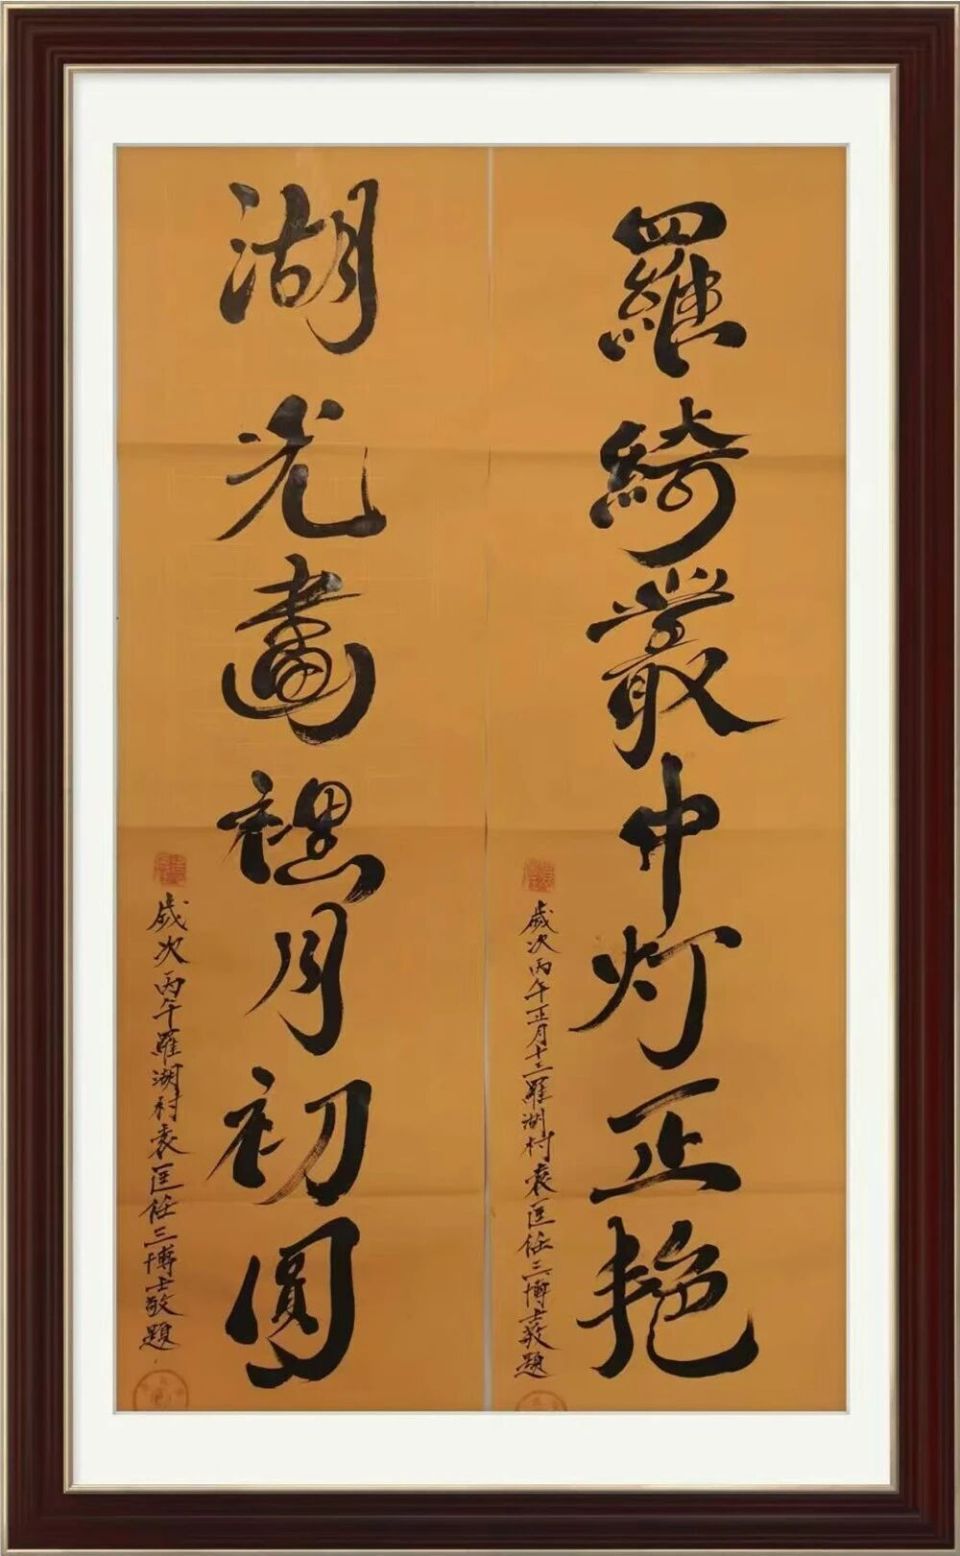 羅綺叢中灯正艳
歲次丙午正月十三羅湖村袁匡任三博士敬題
湖光畫裡月初圓
歲次丙午羅湖村袁匡任三博士敬題